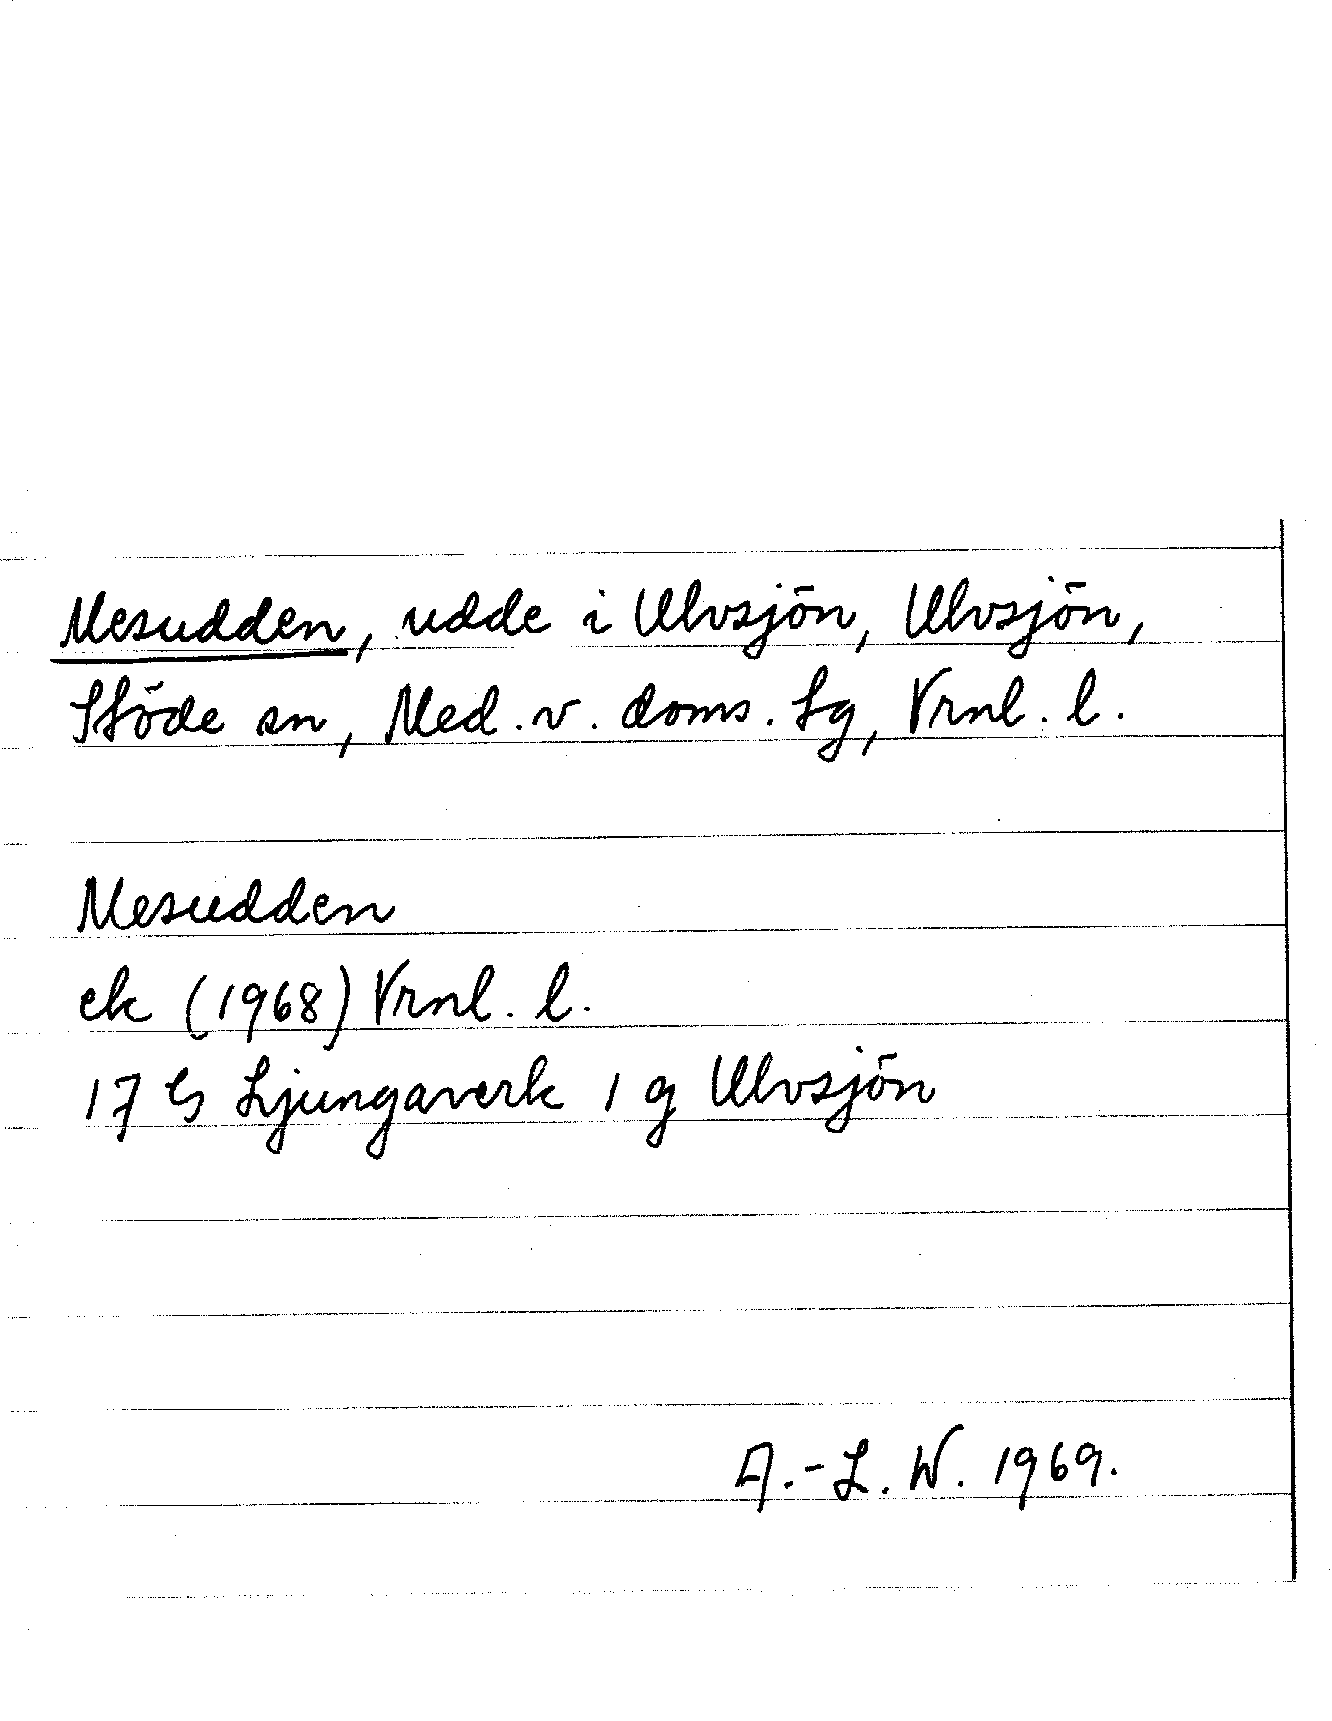 Mesudden, udde i Ulvsjön, Ulvsjön,
Stöde sn, Med. v. doms. lg, Vrnl. l.
Mesudden
ek (1968) Vrnl. l.
17 G Ljungaverk 1 g Ulvsjön
A.-L. W. 1969.